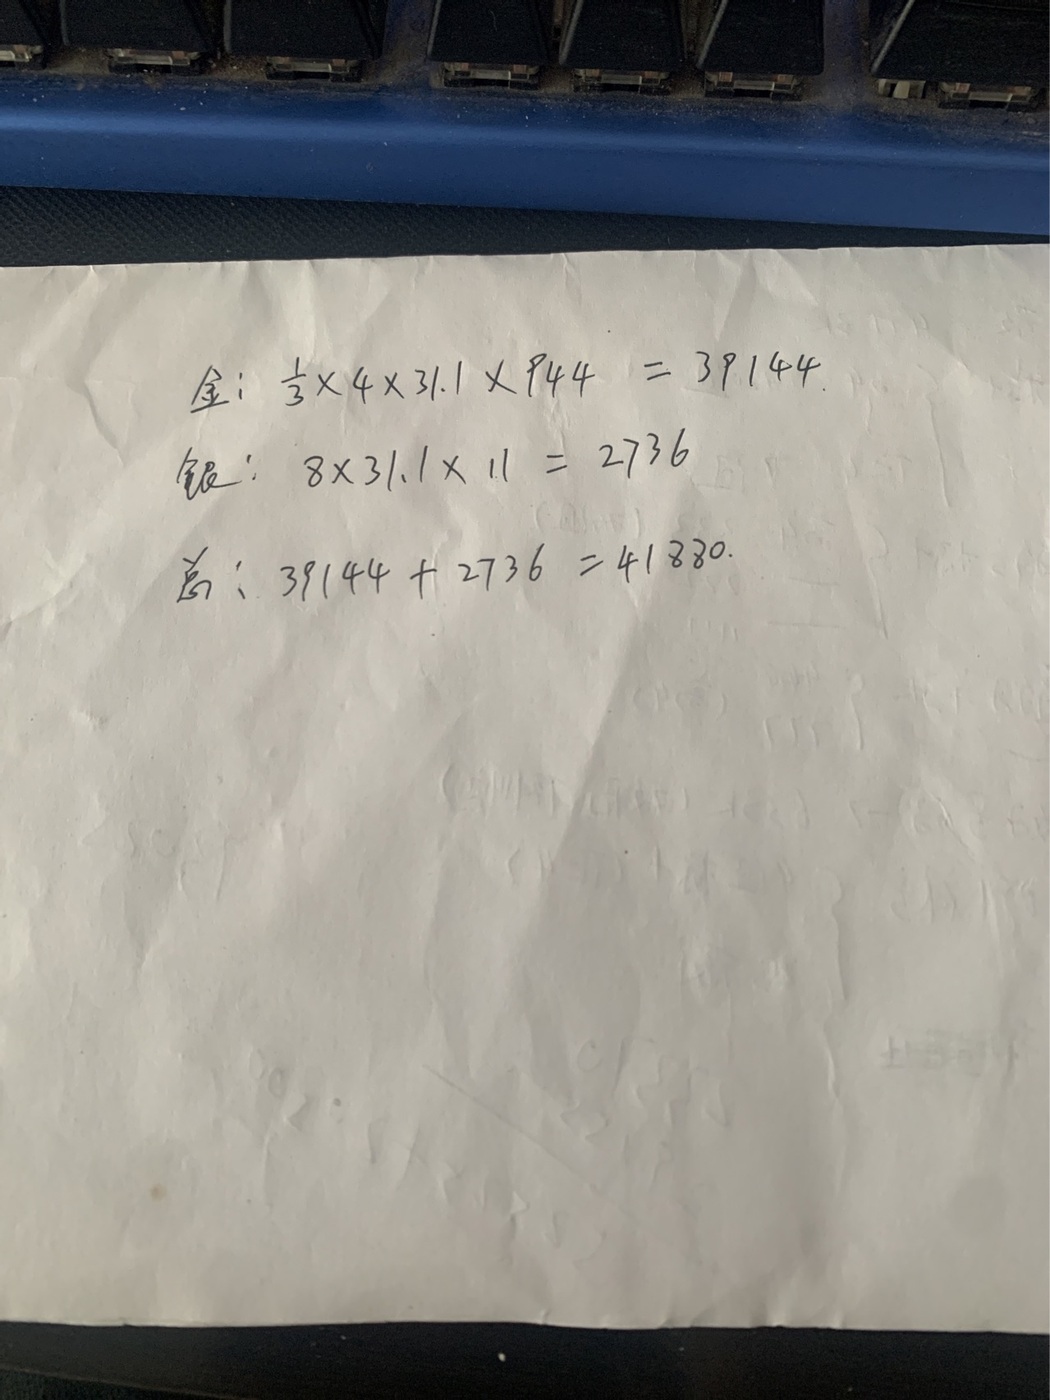 金: 1/3×4×31.1×944 = 39144.
银: 8×31.1×11 = 2736
总: 39144+2736 =41880.